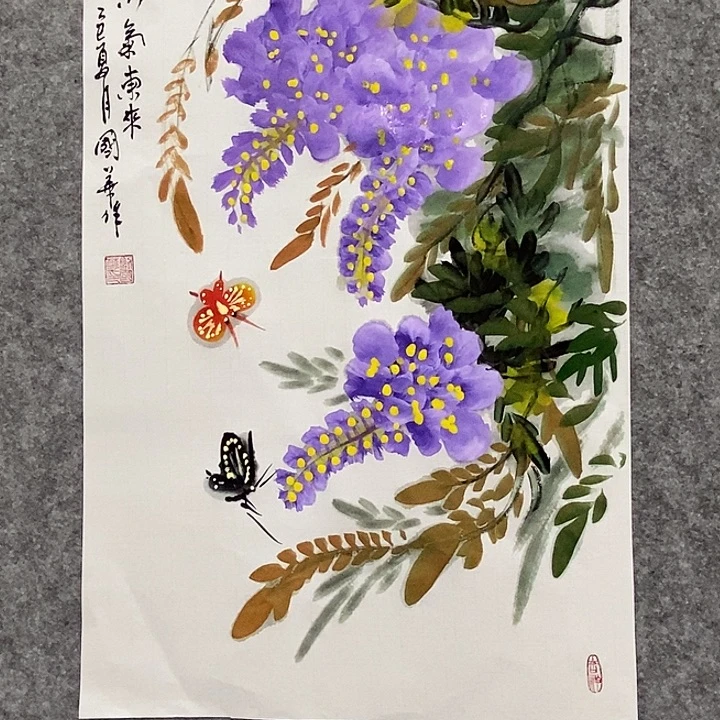 氣東來
乙巳夏月國華作